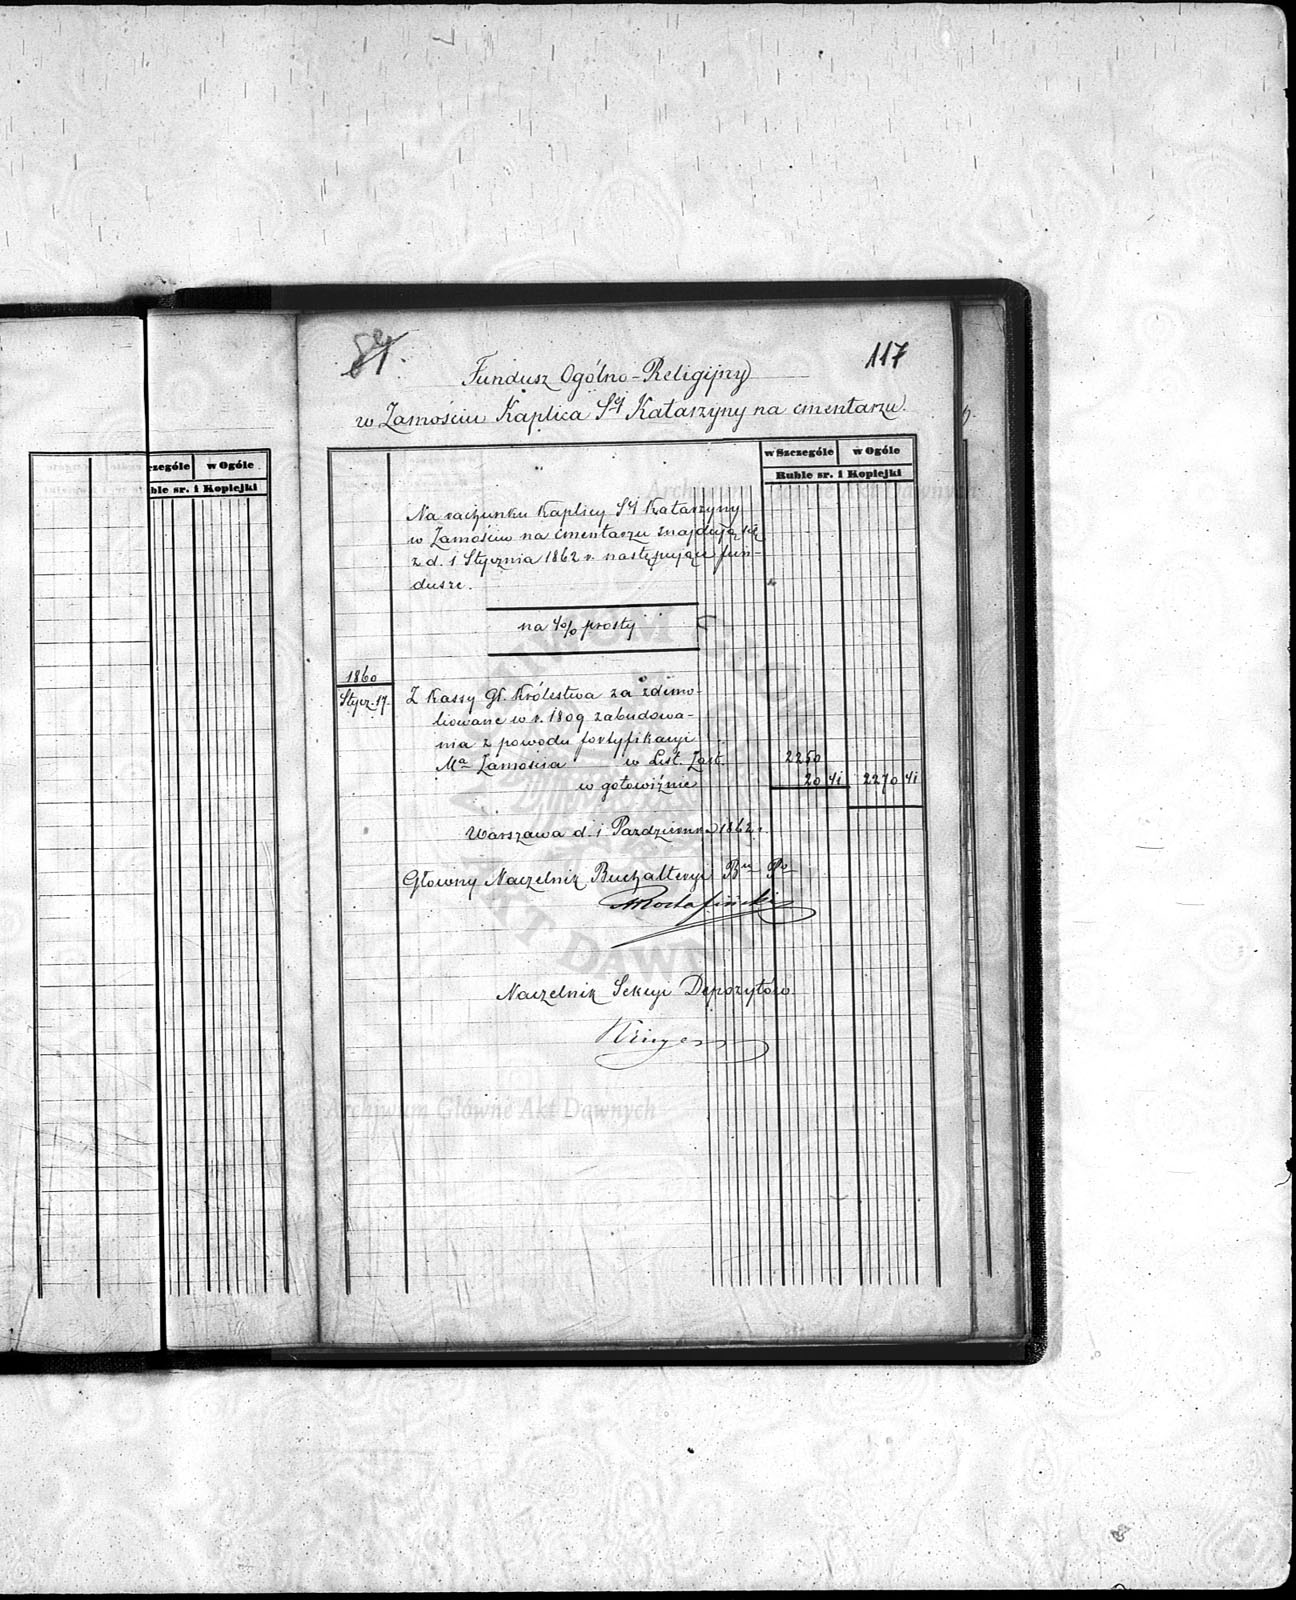 117
Fundusz Ogólno-Religijny
w Zamościu Kaplica Sej Katarzyny na cmentarzu.
zczególe w Ogóle
ble sr. i Kopiejki
w Szczególe w Ogóle
Ruble sr. i Kopiejki
Na rachunku Kaplicy Sej Katarzyny
w Zamościu na cmentarzu znajdują się
z d. 1 Stycznia 1862 r. następujące fun-
dusze.
na 4% prosty
1860
Stycz. 17. Z Kassy Gł. Królestwa za zdemo-
liowane w r. 1809 zabudowa-
nia z powodu fortyfikacyi
Ma Zamościa w List. Zast. 2250
w gotowiźnie 20 41 2270 41
Warszawa d. 1 Październ. 1862 r.
Główny Naczelnik Buchalteryi
Naczelnik Sekcyi Depozytów
Archiwum Główne Akt Dawnych
Archiwum Główne Akt Dawnych